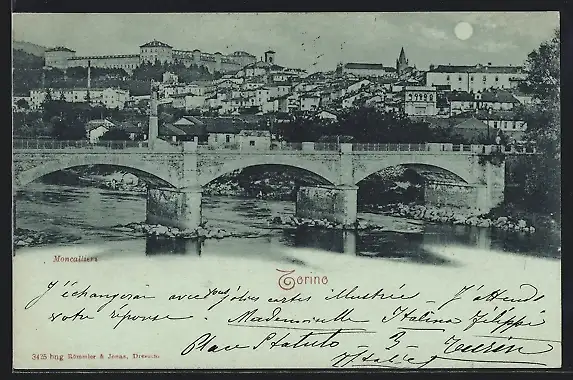 Moncalieri
Torino
J'échangerai avec vous jolies cartes illustrée – J'attends
votre réponse. Mademoiselle Italina Filippi
Place Statuto – 3 –
Turin
(Italie)
3425 hng Römmler & Jonas, Dresden